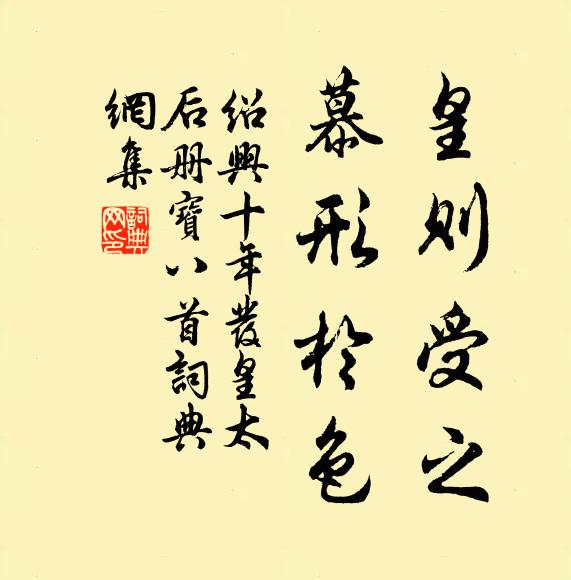 皇則受之
慕形於色
紹興十年發皇太
后册寶八首詞典
網集
詞典網印